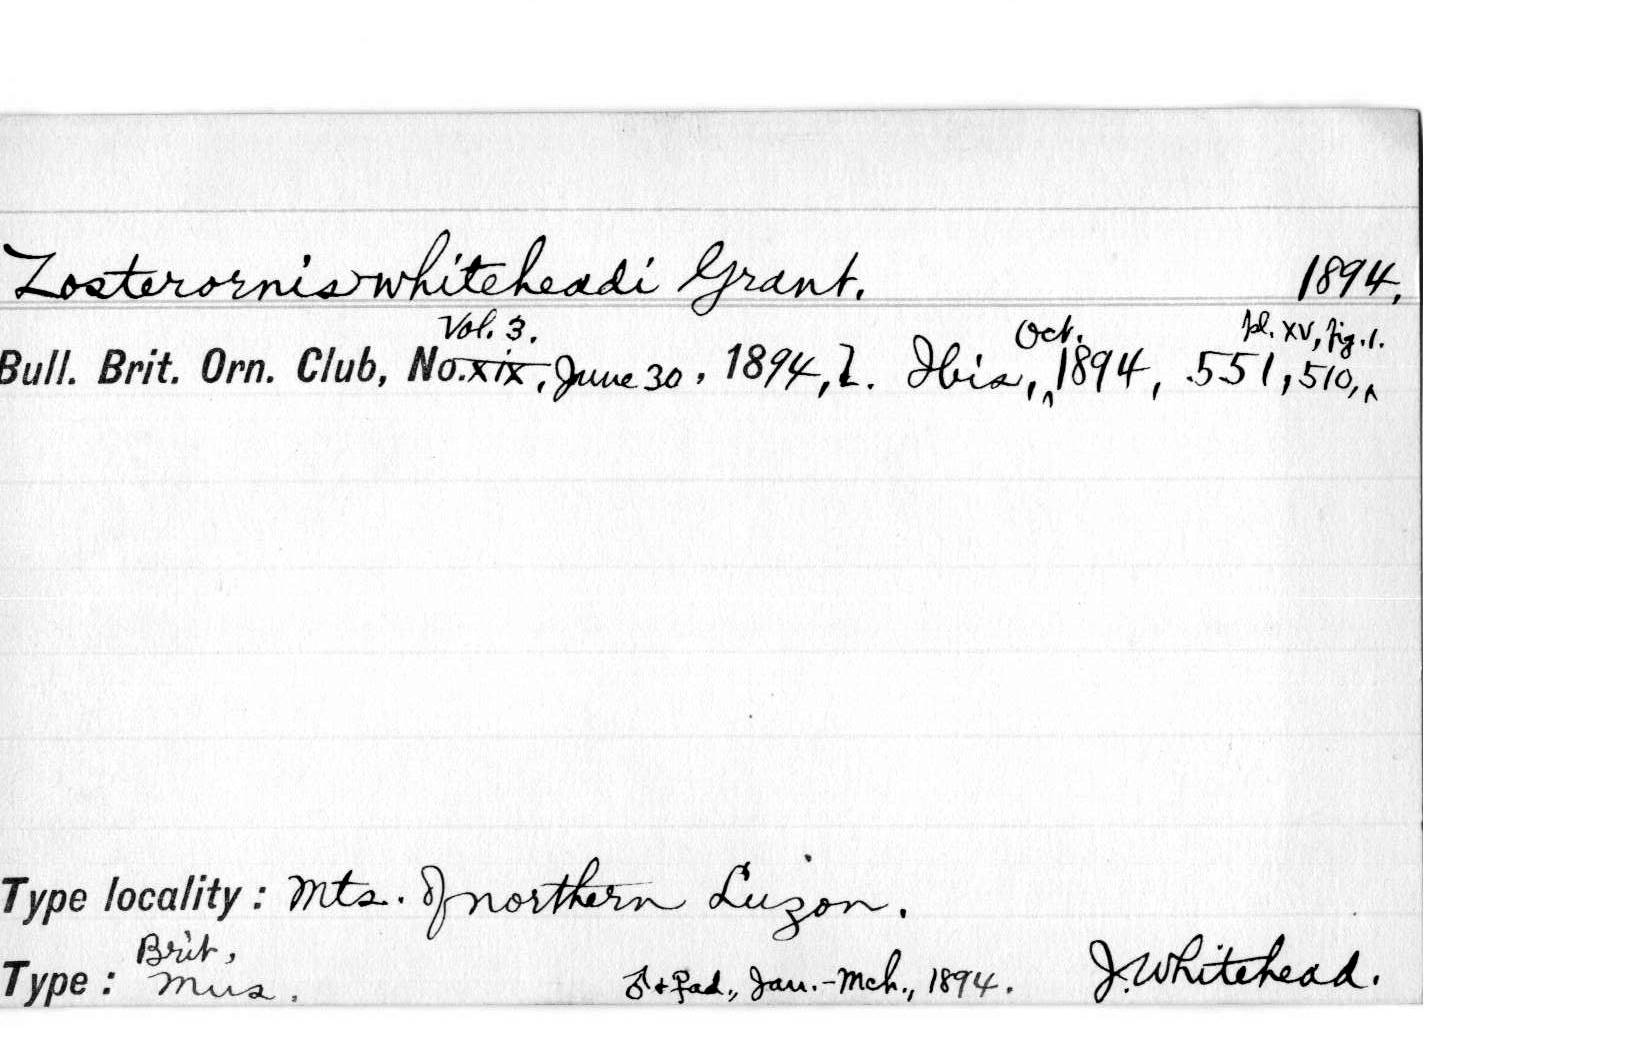 Zosterornis whiteheadi Grant. 1894.
Vol. 3. Oct. pl. XV, fig. 1.
Bull. Brit. Orn. Club, No. xix, June 30, 1894, l. Ibis, ^ 1894, 551, 510, ^
Type locality: Mts. of northern Luzon.
Brit,
Type: Mus. ♂ + ♀ ad., Jan.-Mch., 1894. J. Whitehead.